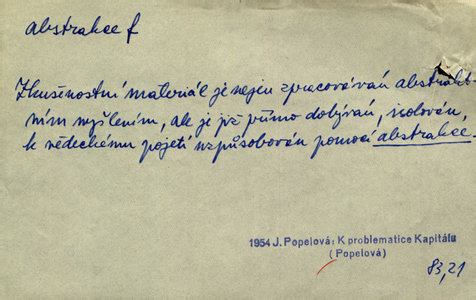 abstrakce f
Zkušenostní materiál je nejen zpracováván abstrakt-
ním myšlením, ale je jím přímo dobýván, isolován,
k vědeckému pojetí uzpůsobován pomocí abstrakce.
1954 J. Popelová: K problematice Kapitálu
(Popelová)
83,21